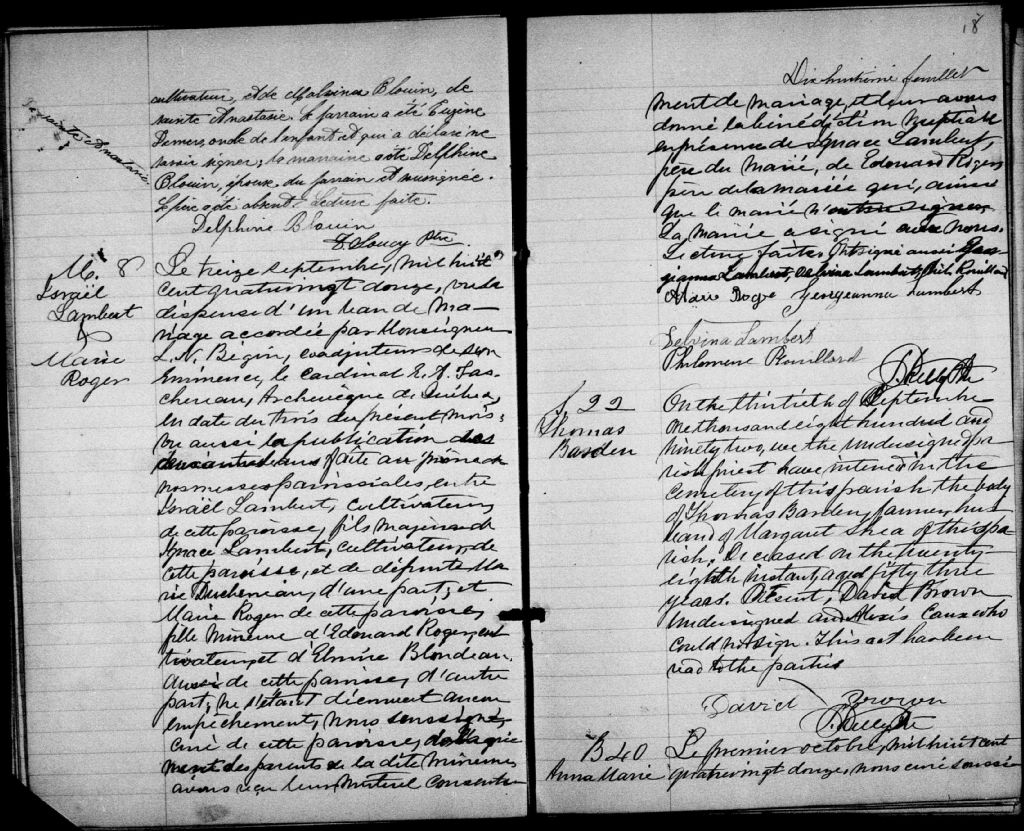 cultivateur, et de Malvina Blouin, de
sainte Anastasie. Le parrain a été Eugène
Demers, oncle de l'enfant et qui a déclaré ne
savoir signer; la marraine a été Delphine
Blouin, épouse du parrain et soussignée.
Le père a été absent. Lecture faite.
Delphine Blouin
Ptre
M. 8
Israël
Lambert
&
Marie
Roger
Le treize septembre, mil huit
cent quatrevingt douze, vu la
dispense d'un ban de ma-
riage accordée par Monseigneur
L. N. Bégin, coadjuteur de son
Eminence, le Cardinal E. A. Tas-
chereau, Archevêque de Québec,
en date du trois du présent mois;
vu aussi la publication des
faite au prône de
nos messes paroissiales, entre
Israël Lambert, cultivateur,
de cette paroisse, fils majeur de
Ignace Lambert, cultivateur, de
cette paroisse, et de défunte Ma-
rie d'une part; et
Marie Roger de cette paroisse,
fille mineure d'Edouard Roger, cul-
tivateur, et d'Elmire Blondeau,
aussi de cette paroisse, d'autre
part; ne s'étant découvert aucun
empêchement, nous soussigné,
curé de cette paroisse, de l'agré-
ment des parents de la dite mineure,
avons reçu leur mutuel consente-
18
Dix huitième feuillet
ment de mariage, et leur avons
donné la bénédiction nuptiale
en présence de Ignace Lambert,
père du marié, de Edouard Roger,
père de la mariée qui, ainsi
que le marié n'ont su signer.
La mariée a signé avec nous.
Lecture faite. Ont signé aussi Geor-
gianna Lambert, Selvina Lambert, Phil. Rouillard
Marie Roge Georgeanna Lambert
Selvina Lambert
Philomene Rouillard
Kelly Ptre
S. 22
Thomas
Barden
On the thirtieth of September
one thousand eight hundred and
ninety two, we the undersigned pa-
rish priest have interred in the
cemetery of this parish the body
of Thomas Barden, farmer, hus-
band of Margaret Shea of this pa-
rish. Deceased on the twenty-
eighth instant, aged fifty three
years. Present, David Brown
undersigned and Alexis who
could not sign. This act has been
read to the parties
David Brown
Kelly Ptre
B 40
Anna Marie
Le premier octobre, mil huit cent
quatrevingt douze, nous curé soussi-